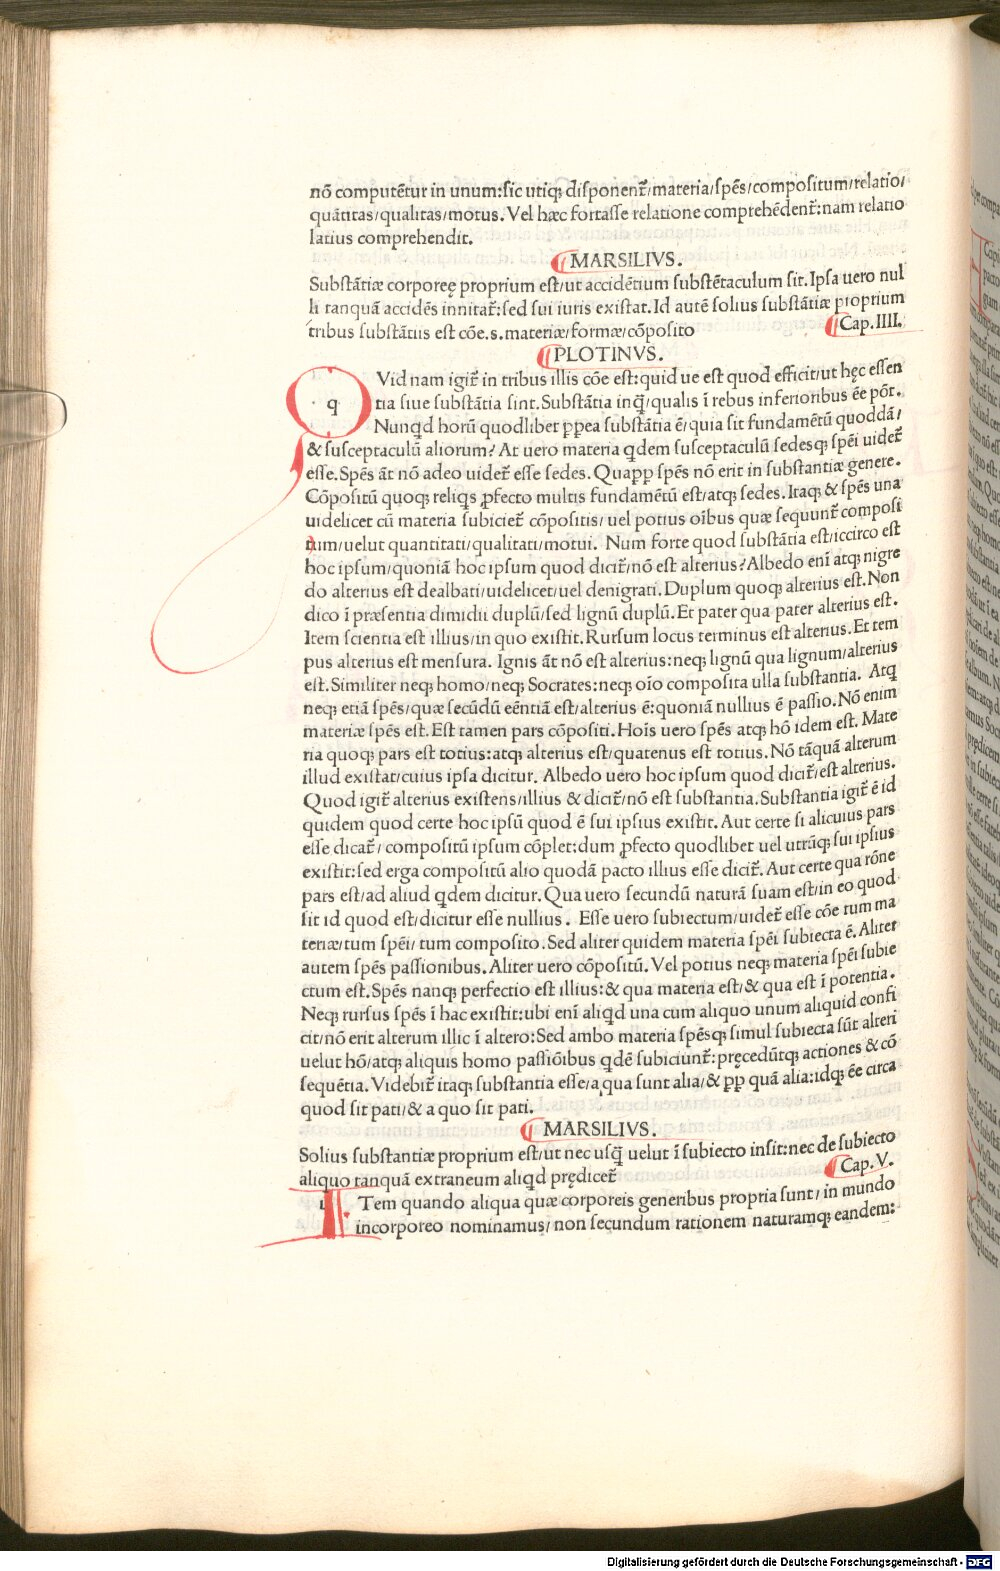 nō computētur in unum:sic utiqꝫ disponent᷑/materia/spēs/compositum/relatio/
quātitas/qualitas/motus. Vel hæc fortasse relatione comprehēdent᷑:nam relatio
latius comprehendit.
MARSILIVS.
Substātiæ corporeę proprium est/ut accidētium substētaculum sit. Ipsa uero nul
li tanquā accidēs innitat᷑:sed sui iuris existat. Id autē solius substātiæ proprium
tribus substātiis est cōe.s.materiæ/formæ/cōposito
Cap.IIII.
PLOTINVS.
q Vid nam igit᷑ in tribus illis cōe est:quid ue est quod efficit/ut hęc essen
tia siue substātia sint.Substātia inq̄/qualis ī rebus inferioribus ēe pōt.
Nunqd horū quodlibet ꝓpea substātia ē/quia sit fundamētū quoddā/
& susceptaculū aliorum? At uero materia qdem susceptaculū sedesqꝫ spēi uidet᷑
esse.Spēs āt nō adeo uidet᷑ esse sedes. Quaꝓꝓ spēs nō erit in substantiæ genere.
Cōpositū quoqꝫ reliqs ꝓfecto multis fundamētū est/atqꝫ sedes. Itaqꝫ & spēs una
uidelicet cū materia subiciet᷑ cōpositis/uel potius oībus quæ sequunt᷑ composi
tum/uelut quantitati/qualitati/motui. Num forte quod substātia est/iccirco est
hoc ipsum/quoniā hoc ipsum quod dicit᷑/nō est alterius? Albedo enī atqꝫ nigre
do alterius est dealbati/uidelicet/uel denigrati. Duplum quoqꝫ alterius est. Non
dico ī præsentia dimidii duplū/sed lignū duplū. Et pater qua pater alterius est.
Item scientia est illius/in quo existit. Rursum locus terminus est alterius. Et tem
pus alterius est mensura. Ignis āt nō est alterius:neqꝫ lignū qua lignum/alterius
est.Similiter neqꝫ homo/neqꝫ Socrates:neqꝫ oīo composita ulla substantia. Atqꝫ
neqꝫ etiā spēs/quæ secūdū eēntiā est/alterius ē:quoniā nullius ē passio. Nō enim
materiæ spēs est. Est tamen pars cōpositi. Hoīs uero spēs atqꝫ hō idem est. Mate
ria quoqꝫ pars est totius:atqꝫ alterius est/quatenus est totius. Nō tāquā alterum
illud existat/cuius ipsa dicitur. Albedo uero hoc ipsum quod dicit᷑/est alterius.
Quod igit᷑ alterius existens/illius & dicit᷑/nō est substantia.Substantia igit᷑ ē id
quidem quod certe hoc ipsū quod ē sui ipsius existit. Aut certe si alicuius pars
esse dicat᷑/ compositū ipsum cōplet:dum ꝓfecto quodlibet uel utrūqꝫ sui ipsius
existit:sed erga compositū alio quodā pacto illius esse dicit᷑. Aut certe qua rōne
pars est/ad aliud qdem dicitur. Qua uero secundū naturā suam est/in eo quod
sit id quod est/dicitur esse nullius. Esse uero subiectum/uidet᷑ esse cōe tum ma
teriæ/tum spēi/ tum composito. Sed aliter quidem materia spēi subiecta ē. Aliter
autem spēs passionibus. Aliter uero cōpositū. Vel potius neqꝫ materia spēi subie
ctum est. Spēs nanqꝫ perfectio est illius:& qua materia est/& qua est ī potentia.
Neqꝫ rursus spēs ī hac existit:ubi enī aliqd una cum aliquo unum aliquid confi
cit/nō erit alterum illic ī altero:Sed ambo materia spēsqꝫ simul subiecta sūt alteri
uelut hō/atqꝫ aliquis homo passiōibus qdē subiciunt᷑:pręcedūtqꝫ actiones & cō
sequētia. Videbit᷑ itaqꝫ substantia esse/a qua sunt alia/& ꝓꝓ quā alia:idqꝫ ēe circa
quod sit pati/& a quo sit pati.
MARSILIVS.
Solius substantiæ proprium est/ut nec usq̄ uelut ī subiecto insit:nec de subiecto
aliquo tanquā extraneum aliqd prędicet᷑
Cap.V.
i Tem quando aliqua quæ corporeis generibus propria sunt/ in mundo
incorporeo nominamus/ non secundum rationem naturamqꝫ eandem:
Digitalisierung gefördert durch die Deutsche Forschungsgemeinschaft - DFG